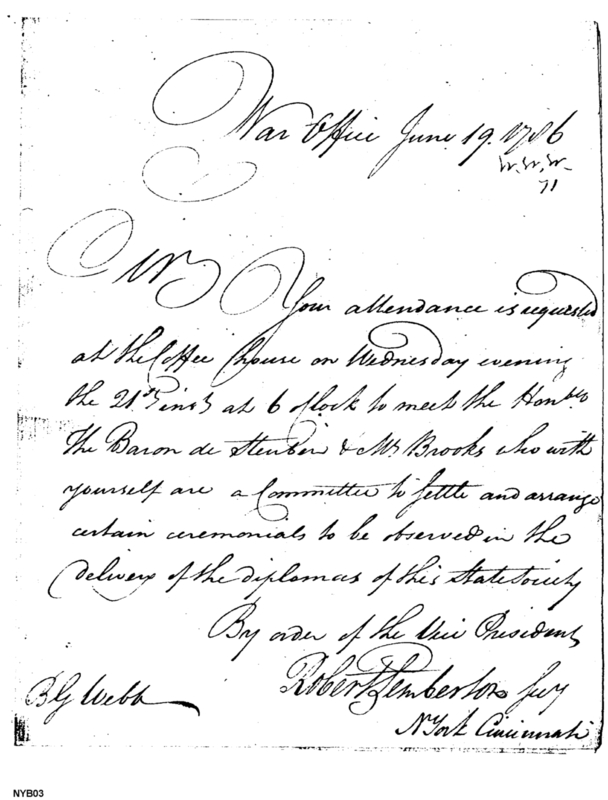 War Office June 19. 1786
W.W.W.
71
Sir
Your attendance is requested
at the Coffee house on Wednesday evening
the 21st inst at 6 oClock to meet the Honble
The Baron de Steuben & Mr Brooks who with
yourself are a Committee to settle and arrange
certain ceremonials to be observed in the
delivery of the diplomas of this State Society
By order of the Vice President
Robert Pemberton Secy
N York Cincinnati
B G Webb
NYB03